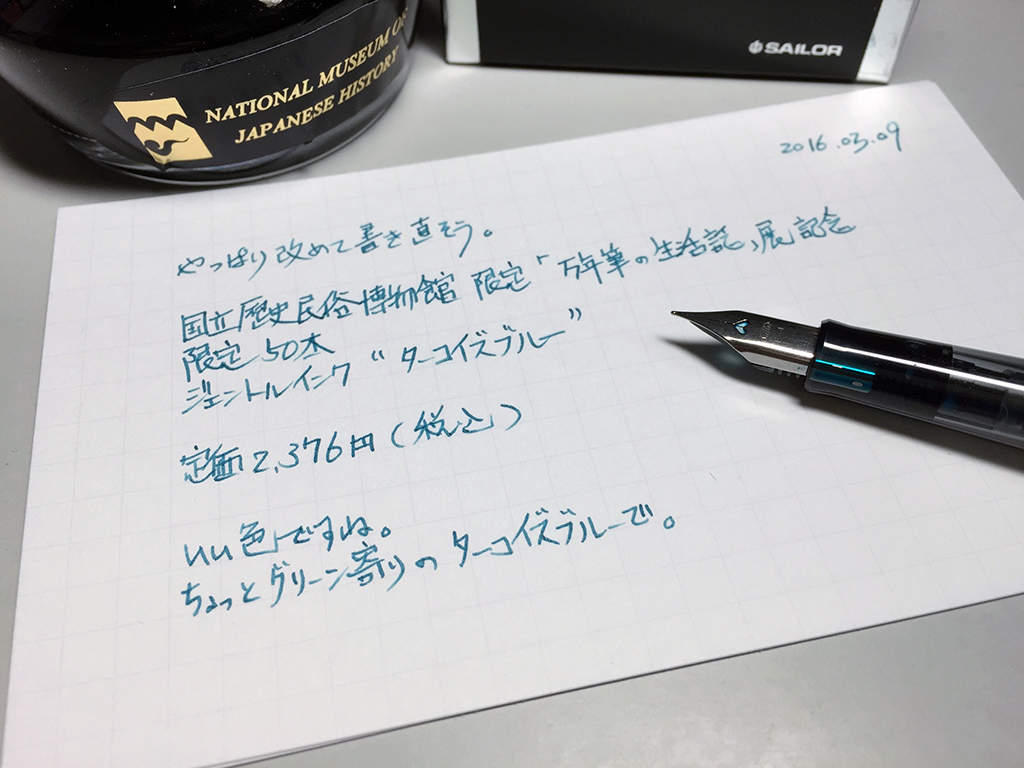 NATIONAL MUSEUM OF
JAPANESE HISTORY
SAILOR
2016.03.09
やっぱり改めて書き直そう。
国立歴史民俗博物館 限定「万年筆の生活誌」展記念
限定50本
ジェントルインク “ターコイズブルー”
定価2,376円(税込)
いい色ですね。
ちょっとグリーン寄りのターコイズブルーで。